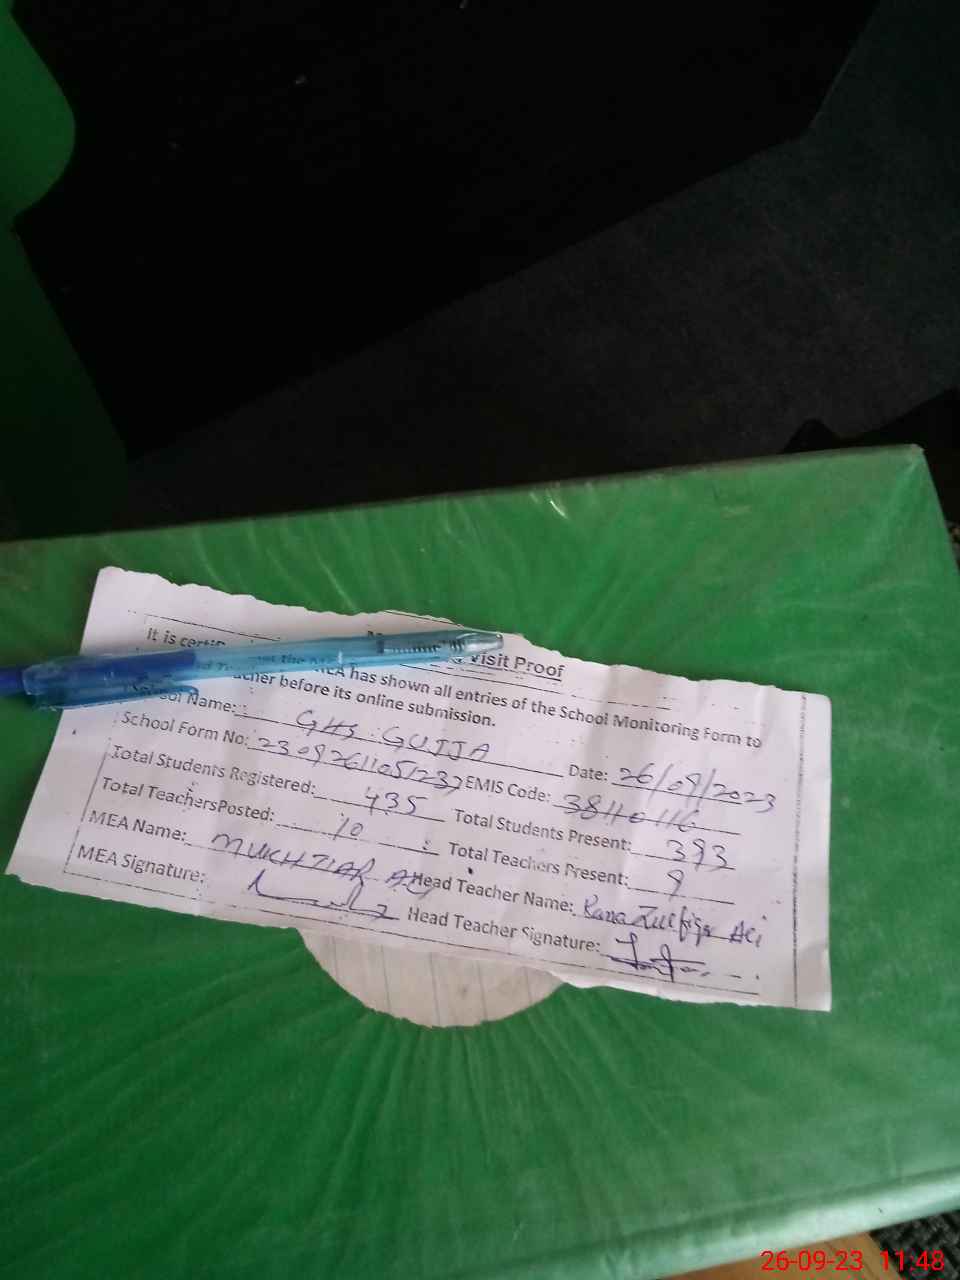 Visit Proof
It is the MEA has shown all entries of the School Monitoring Form to
before its online submission.
Name: GHS GUJJA Date: 26/09/2023
School Form No: 230926110512 EMIS Code: 38110116
Total Students Registered: 435 Total Students Present: 393
Total TeachersPosted: 10 Total Teachers Present: 9
MEA Name: MUKHTIAR ALI Head Teacher Name: Rana Zulfiqar Ali
MEA Signature: Head Teacher Signature:
26-09-23 11:48